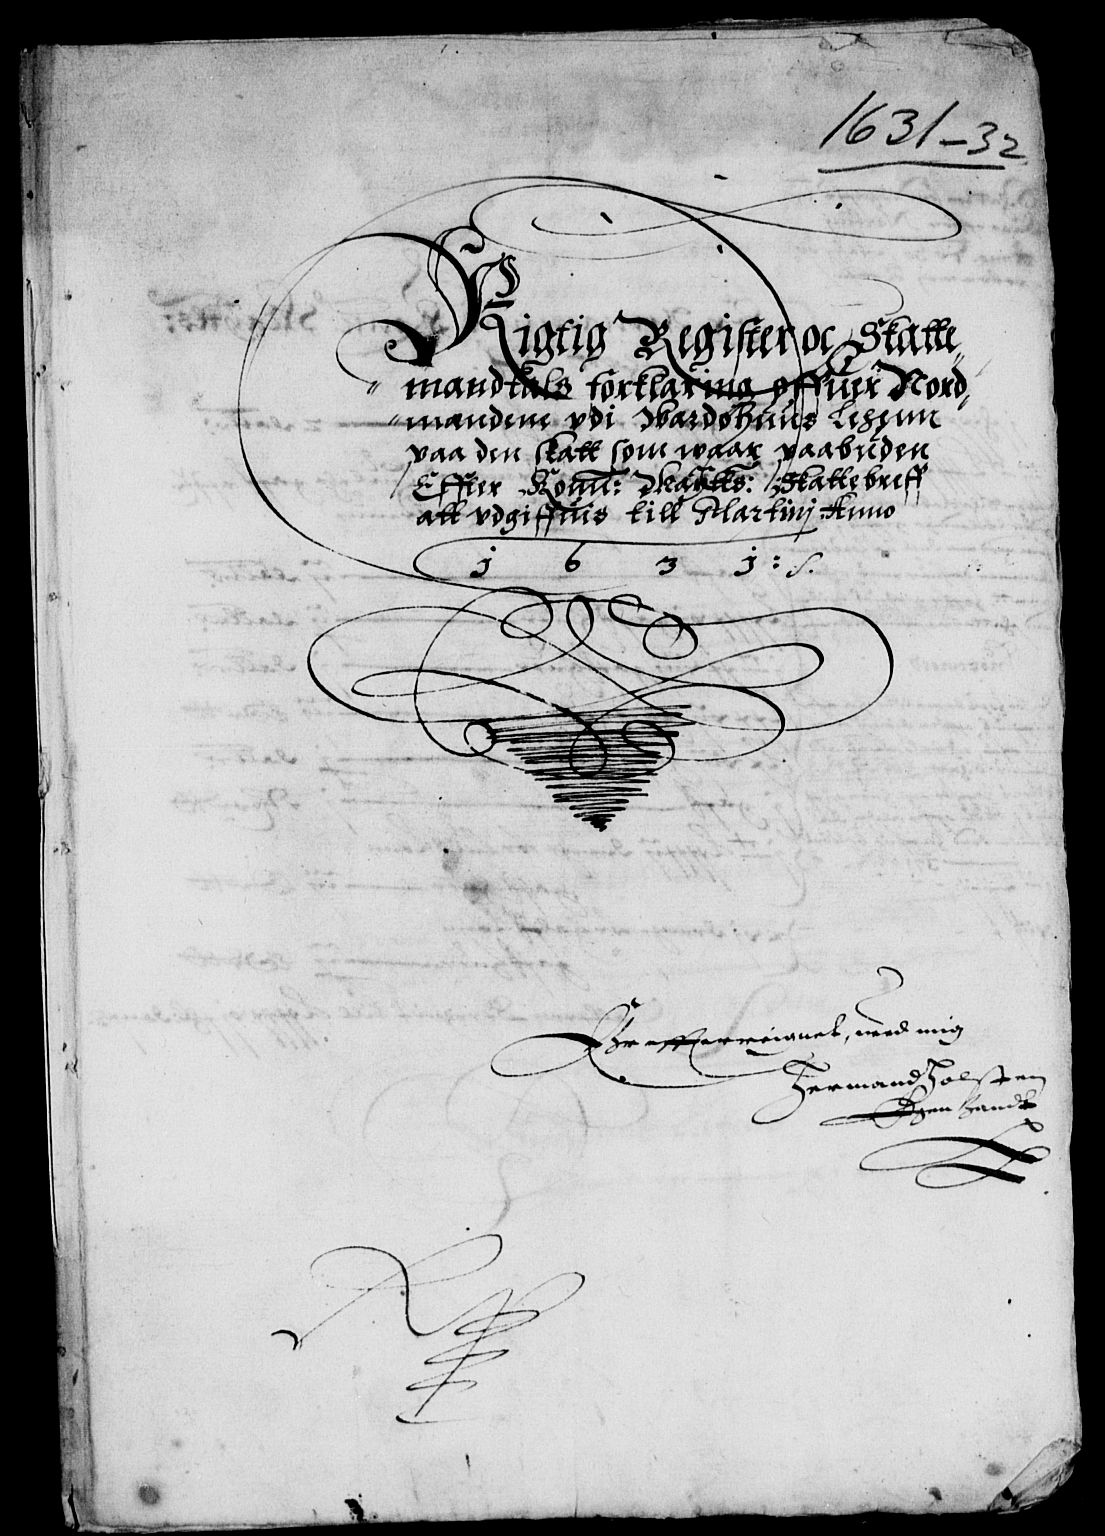 1631-32
Rigtig Register oc Skatte
mandtals forklaring offuer Nord
mandene vdi Wardøhuus Lehenn
paa den skatt som waar paabuden
Effter Konn: Maÿtts: Skattebreff
att vdgiffuis till Martinj Anno
1631:
Offuerreignet, med mig
Hermand Holsten
Egen handt